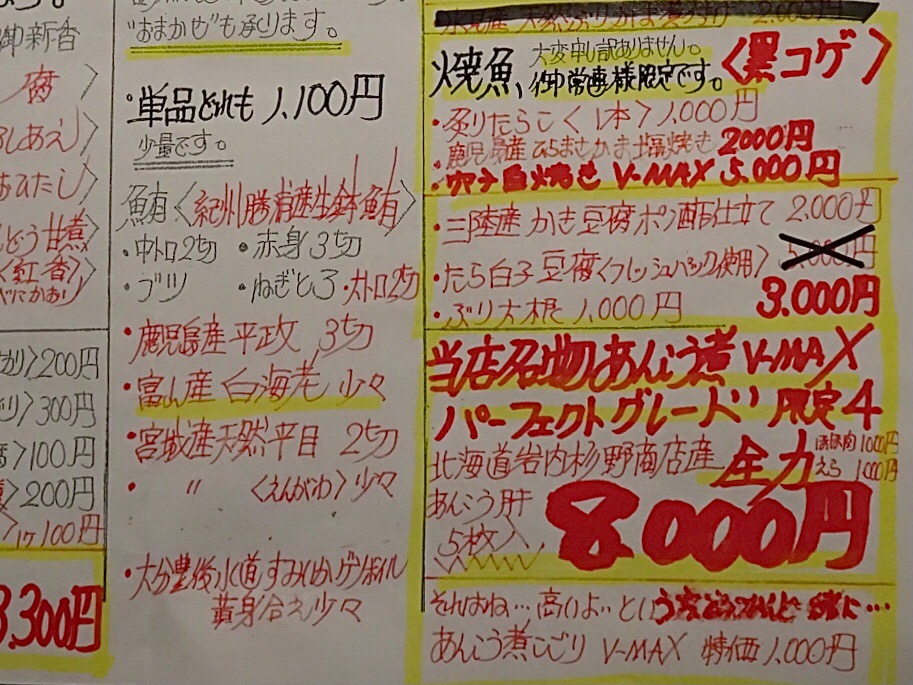 御新香
腐〉
あえ〉
おひたし〉
どう甘煮〉
〈紅香〉
べにかおり
200円
300円
〉100円
〉200円
〉1ヶ100円
3.300円
"おまかせ"も承ります。
・単品どれも 1,100円
少量です。
鮪〈紀州勝浦産生鉢鮪〉
・中トロ2切 ・赤身3切
・ブツ ・ねぎとろ ・大トロ2切
・鹿児島産平政 3切
・富山産 白海老 少々
・宮城産天然平目 2切
・ 〃 〈えんがわ〉少々
・大分豊後水道すみいかゲソボイル
黄身合え少々
2.000円
焼魚、大変申し訳ありません。
御常連様限定です。〈黒コゲ〉
・炙りたらこ〈1本〉1,000円
・鹿児島産ひらまさかま塩焼き 2000円
焼き V-MAX 5,000円
・三陸産 かき豆腐ポン酢仕立て 2.000円
・たら白子豆腐〈フレッシュパック使用〉 5.000円
3.000円
・ぶり大根 1,000円
当店名物あんこう煮 V-MAX
パーフェクトグレード 限定4
北海道岩内杉野商店産 全力
1000円
えら 1000円
あんこう肝
5枚入
8000円
それはね…高いよ…とい
あんこう煮こごり V-MAX 特価1,000円